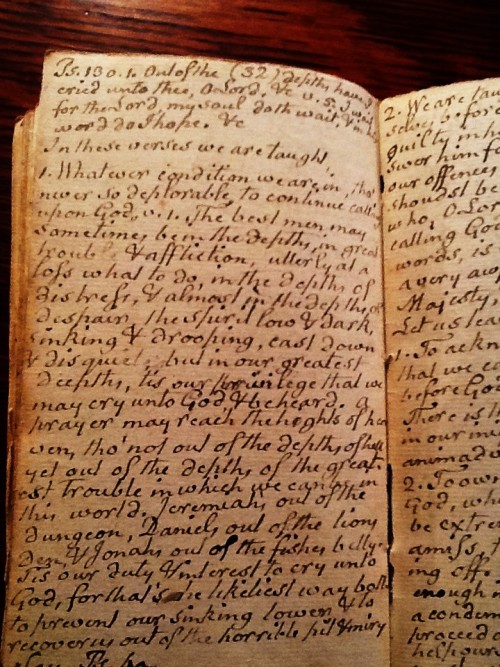 Ps. 130. 1. Out of the (32) depths have I
cried unto thee, O Lord, &c v. 5. I wait
for the Lord, my soul doth wait, & in his
word do I hope. &c
In these verses we are taught,
1. Whatever condition we are in, tho'
never so deplorable, to continue calling
upon God, v. 1. The best men may
sometimes be in the depths, in great
trouble & affliction, utterly at a
loss what to do, in the depths of
distress, & almost in the depths of
despair, the spirit low & dark,
sinking & drooping, cast down
& disquiet; but in our greatest
deepths, tis our privilege that we
may cry unto God & be heard. a
prayer may reach the heights of hea
ven, tho' not out of the depths of hell
yet out of the depths of the great-
est trouble in which we can be in
this world. Jeremiahs out of the
dungeon, Daniels out of the lions
Den, & Jonahs out of the fishes belly.
Tis our duty & interest to cry unto
God, for that's the likeliest way both
to prevent our sinking lower, & to
recover us out of the horrible pit & miry
clay. Ps
2. We are tau
selves before
guilty in h
swer him f
our offences
shouldst be
who, O Lor
calling God
words, is
a very aw
Majesty,
Let us lea
1. To ackn
that we ca
before Go
There is
in our m
animadv
2. To own
God, wh
be extre
amiss, t
ing off.
enough
a condem
proceed a
help our